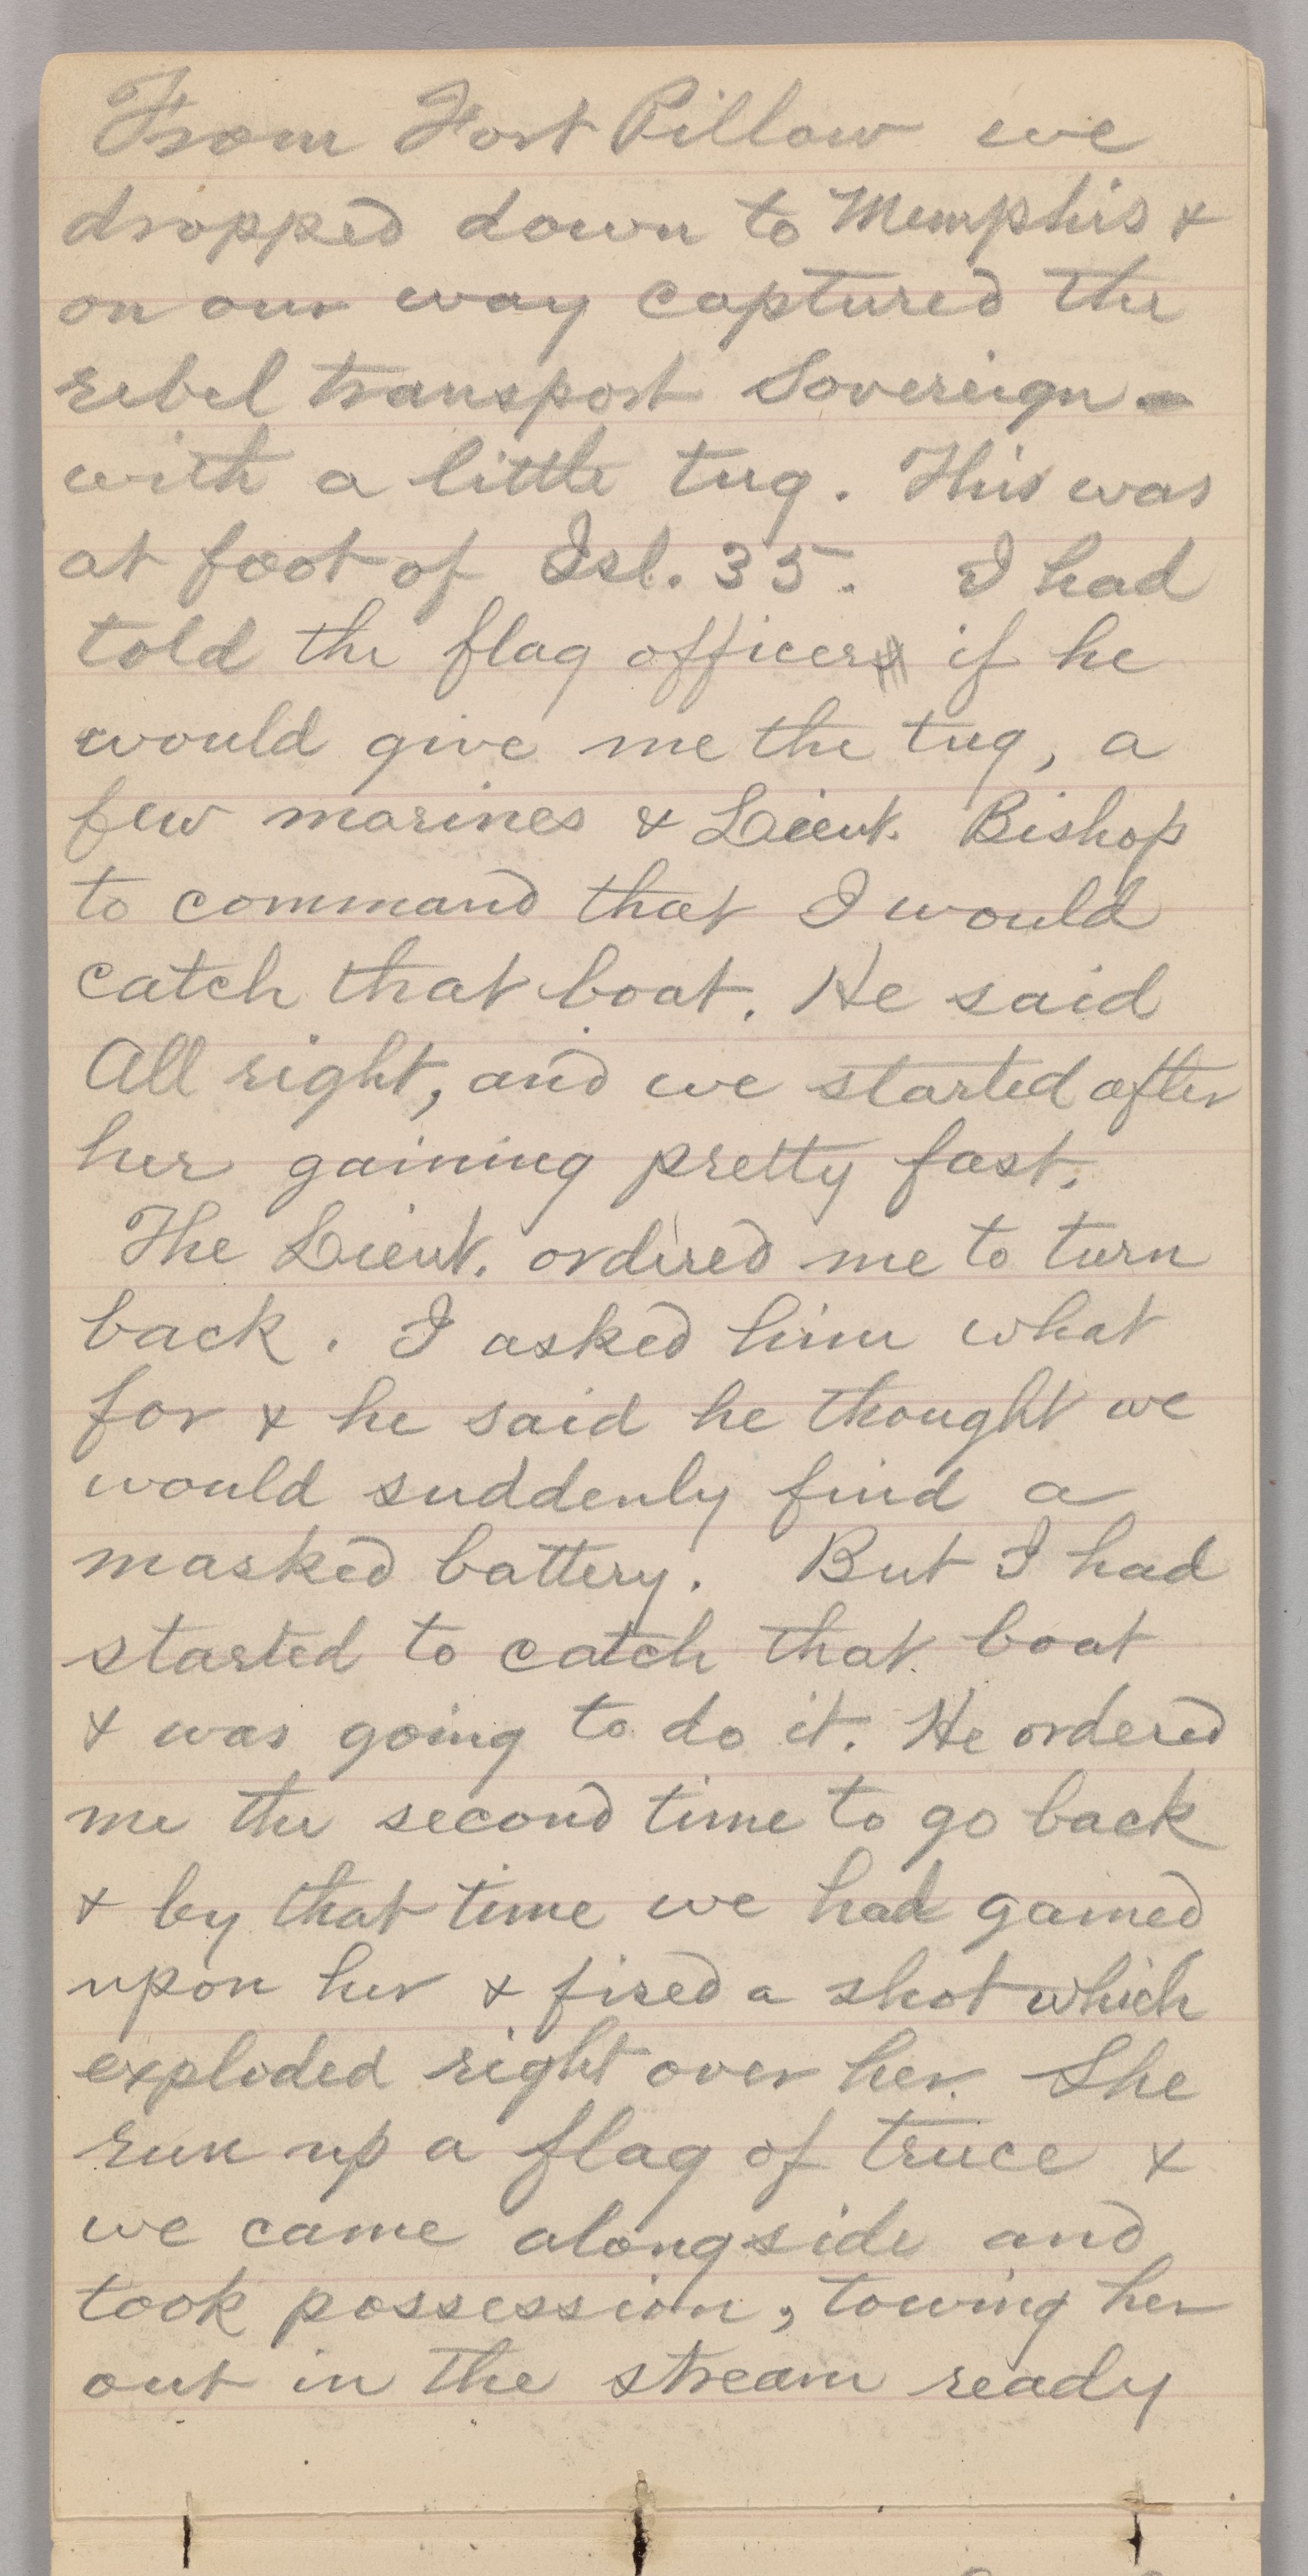 From Fort Pillow we
dropped down to Memphis &
on our way captured the
rebel transport Sovereign -
with a little tug. This was
at foot of Isl. 35. I had
told the flag officer if he
would give me the tug, a
few marines & Lieut. Bishop
to command that I would
catch that boat. He said
All right, and we started after
her gaining pretty fast.
The Lieut. ordered me to turn
back. I asked him what
for & he said he thought we
would suddenly find a
masked battery. But I had
started to catch that boat
& was going to do it. He ordered
me the second time to go back
& by that time we had gained
upon her & fired a shot which
exploded right over her. She
run up a flag of truce &
we came alongside and
took possession, towing her
out in the stream ready